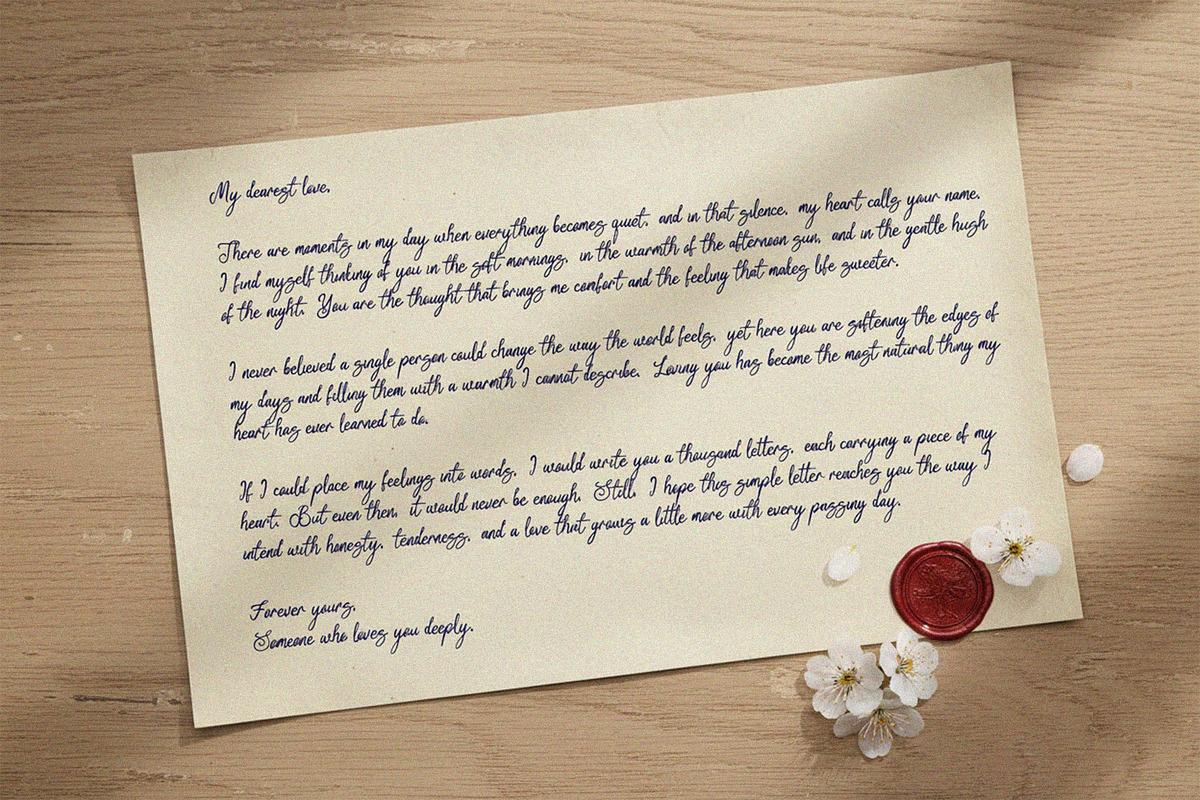 My dearest love,
There are moments in my day when everything becomes quiet, and in that silence, my heart calls your name.
I find myself thinking of you in the soft mornings, in the warmth of the afternoon sun, and in the gentle hush
of the night. You are the thought that brings me comfort and the feeling that makes life sweeter.
I never believed a single person could change the way the world feels, yet here you are softening the edges of
my days and filling them with a warmth I cannot describe. Loving you has become the most natural thing my
heart has ever learned to do.
If I could place my feelings into words, I would write you a thousand letters, each carrying a piece of my
heart. But even then, it would never be enough. Still, I hope this simple letter reaches you the way I
intend with honesty, tenderness, and a love that grows a little more with every passing day.
Forever yours,
Someone who loves you deeply.